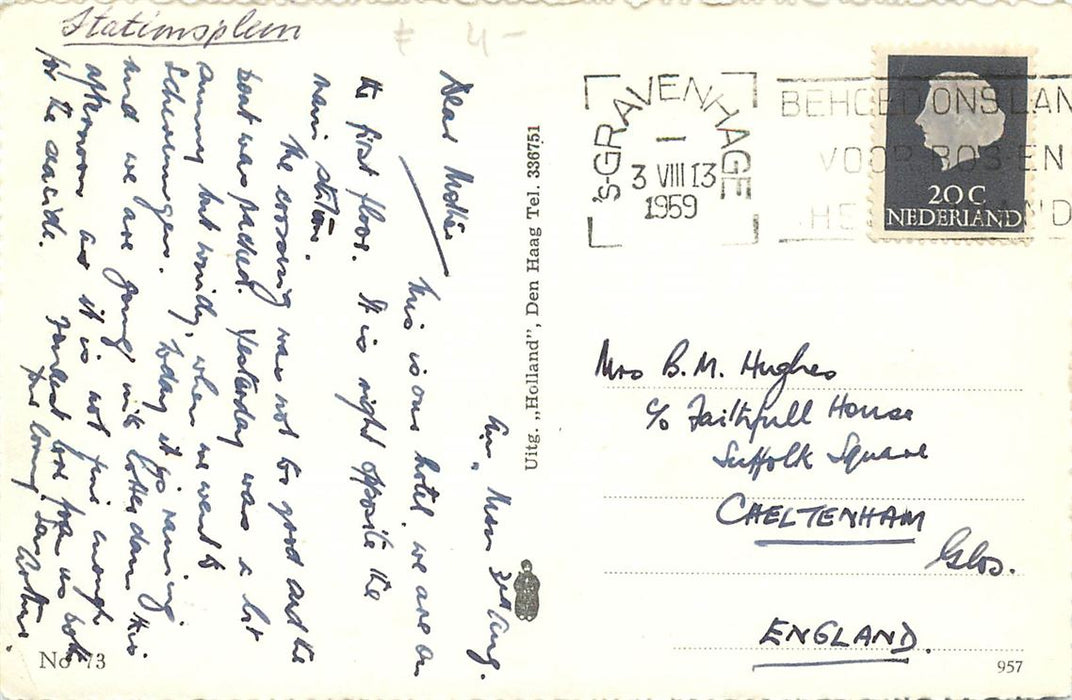 Stationsplein
4 -
3rd Aug.
Dear Mother
This is our hotel, we are on
the first floor. It is right opposite the
main station.
The crossing was not too good and the
boat was packed. Yesterday was a bit
sunny but windy, when we went to
Scheveningen. Today it is raining
and we are going into Rotterdam this
afternoon as it is not fine enough
for the seaside. Fondest love from us both
Your loving son
No 73
Uitg. „Holland”, Den Haag Tel. 336751
's-GRAVENHAGE
3 VIII 13
1959
BEHOED ONS LAN
VOOR BOS EN
HE ND
20 C
NEDERLAND
Mrs B.M. Hughes
c/o Faithfull House
Suffolk Square
CHELTENHAM
Glos.
ENGLAND.
957